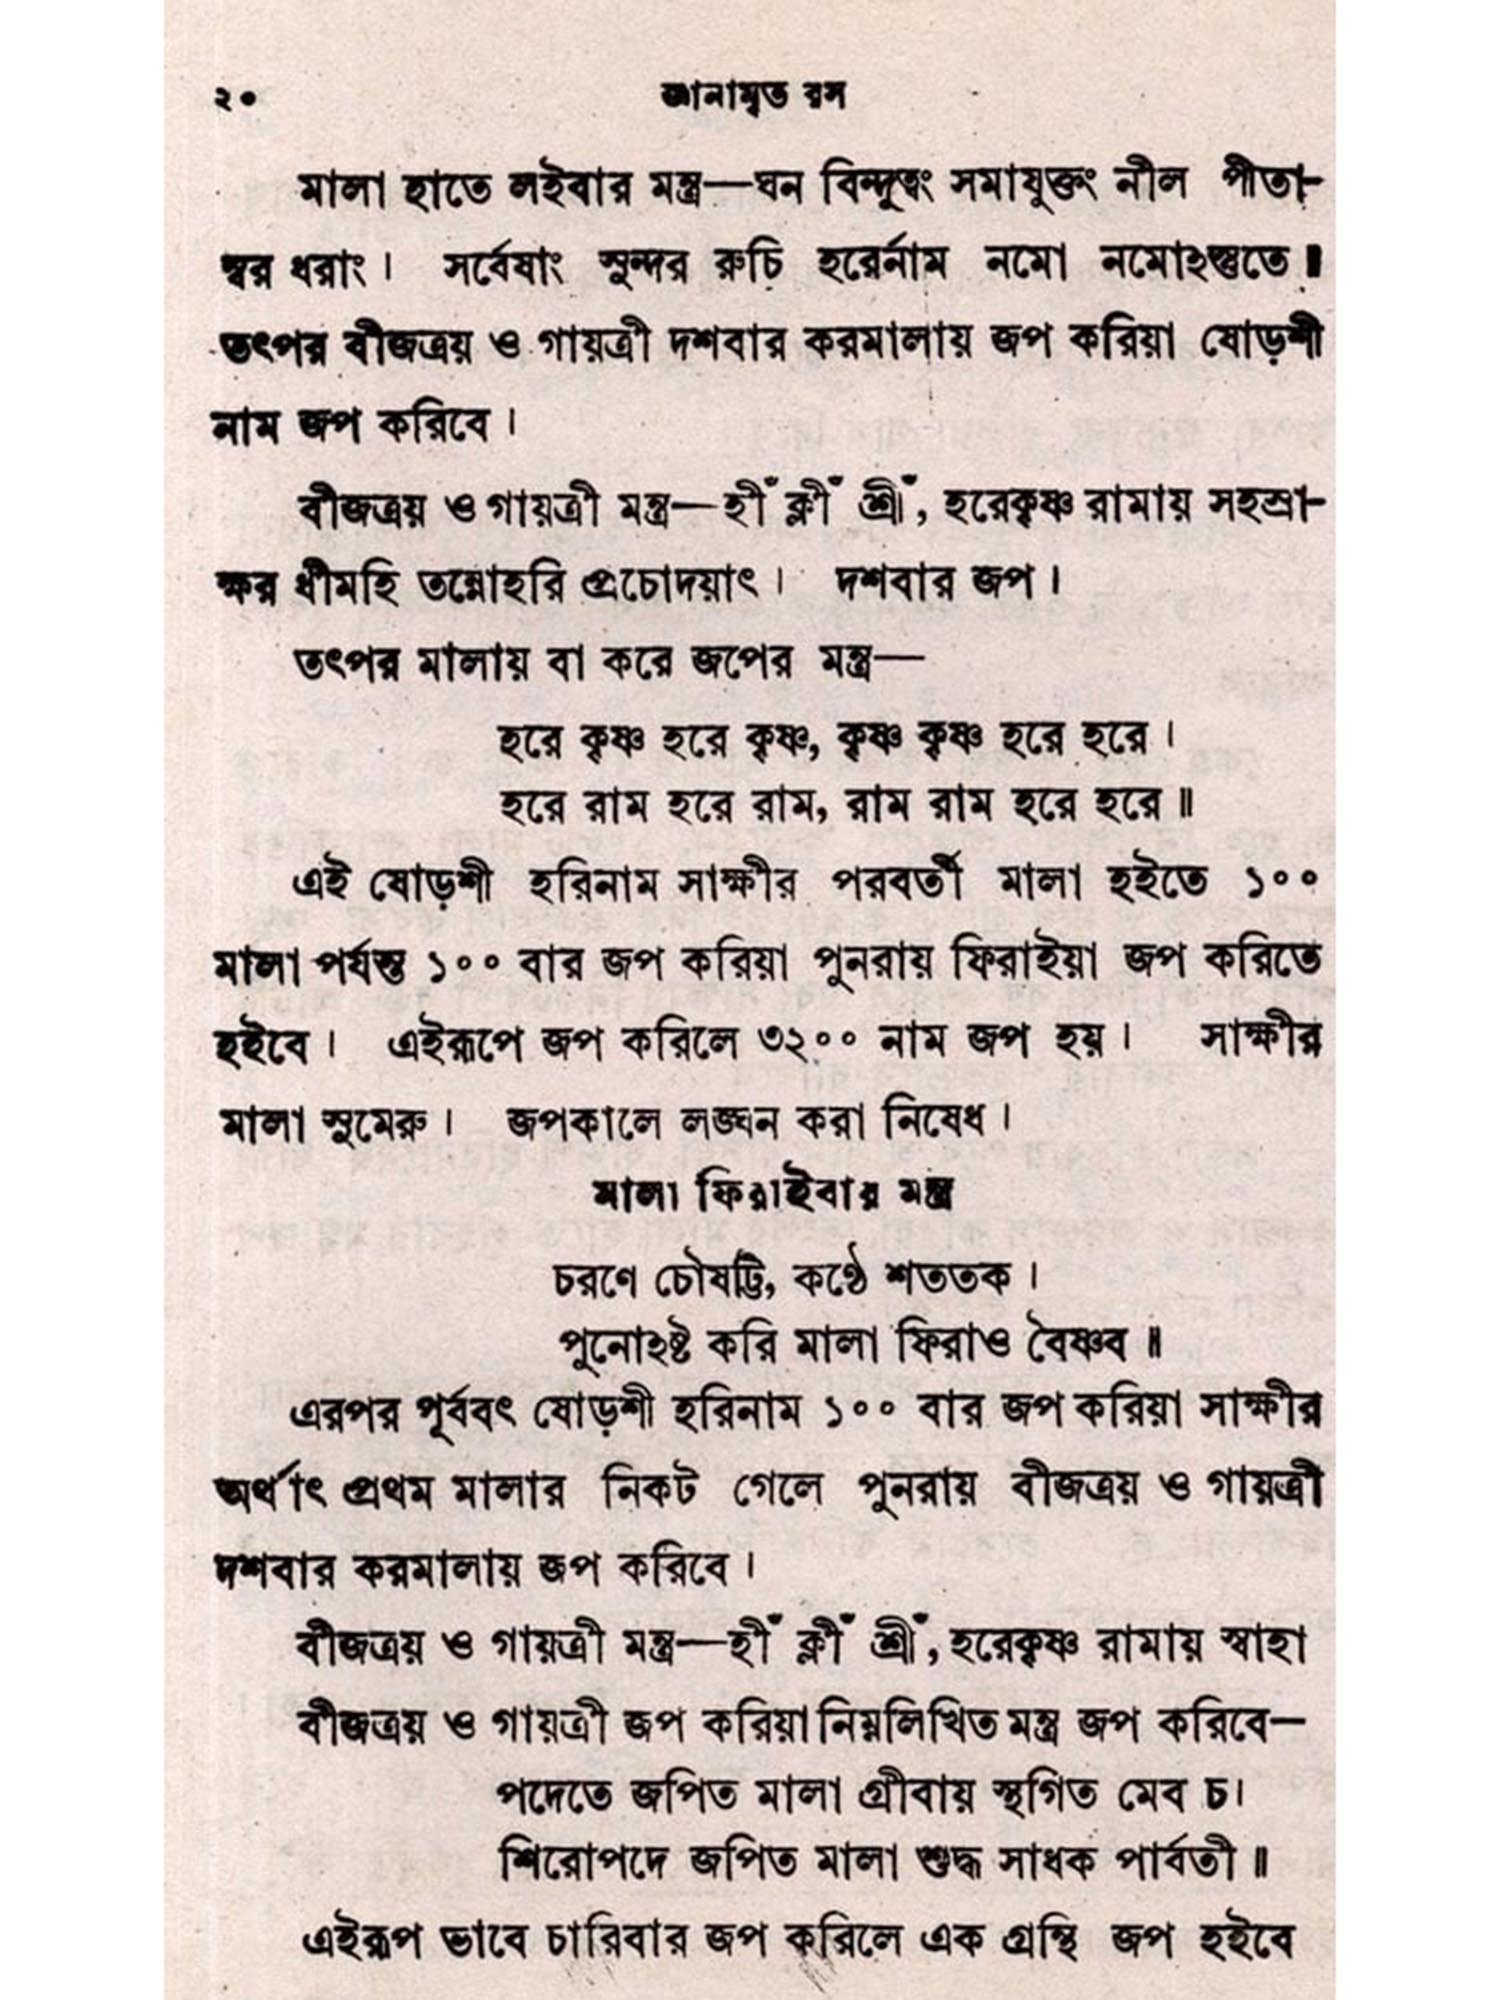 ২০ জ্ঞানামৃত রস
মালা হাতে লইবার মন্ত্র—ঘন বিন্দুত্বং সমাযুক্তং নীল পীতা-
ম্বর ধরাং। সর্বেষাং সুন্দর রুচি হরের্নাম নমো নমোঽস্তুতে॥
তৎপর বীজত্রয় ও গায়ত্রী দশবার করমালায় জপ করিয়া ষোড়শী
নাম জপ করিবে।
বীজত্রয় ও গায়ত্রী মন্ত্র—হীঁ ক্লীঁ শ্রীঁ, হরেকৃষ্ণ রামায় সহস্রা-
ক্ষর ধীমহি তন্নোহরি প্রচোদয়াৎ। দশবার জপ।
তৎপর মালায় বা করে জপের মন্ত্র—
হরে কৃষ্ণ হরে কৃষ্ণ, কৃষ্ণ কৃষ্ণ হরে হরে।
হরে রাম হরে রাম, রাম রাম হরে হরে॥
এই ষোড়শী হরিনাম সাক্ষীর পরবর্তী মালা হইতে ১০০
মালা পর্যন্ত ১০০ বার জপ করিয়া পুনরায় ফিরাইয়া জপ করিতে
হইবে। এইরূপে জপ করিলে ৩২০০ নাম জপ হয়। সাক্ষীর
মালা সুমেরু। জপকালে লঙ্ঘন করা নিষেধ।
মালা ফিরাইবার মন্ত্র
চরণে চৌষট্টি, কণ্ঠে শততক।
পুনোঽষ্ট করি মালা ফিরাও বৈষ্ণব॥
এরপর পূর্ববৎ ষোড়শী হরিনাম ১০০ বার জপ করিয়া সাক্ষীর
অর্থাৎ প্রথম মালার নিকট গেলে পুনরায় বীজত্রয় ও গায়ত্রী
দশবার করমালায় জপ করিবে।
বীজত্রয় ও গায়ত্রী মন্ত্র—হীঁ ক্লীঁ শ্রীঁ, হরেকৃষ্ণ রামায় স্বাহা
বীজত্রয় ও গায়ত্রী জপ করিয়া নিম্নলিখিত মন্ত্র জপ করিবে—
পদেতে জপিত মালা গ্রীবায় স্থগিত মেব চ।
শিরোপদে জপিত মালা শুদ্ধ সাধক পার্বতী॥
এইরূপ ভাবে চারিবার জপ করিলে এক গ্রন্থি জপ হইবে